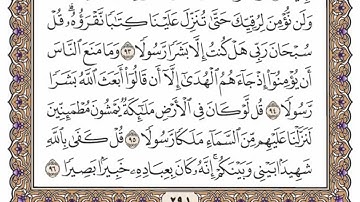 وَلَن نُّؤْمِنَ لِرُقِيِّكَ حَتَّىٰ تُنَزِّلَ عَلَيْنَا كِتَٰبًا نَّقْرَؤُهُۥ ۗ قُلْ
سُبْحَانَ رَبِّي هَلْ كُنتُ إِلَّا بَشَرًا رَّسُولًا ٩٣ وَمَا مَنَعَ النَّاسَ
أَن يُؤْمِنُوٓا۟ إِذْ جَآءَهُمُ الْهُدَىٰٓ إِلَّآ أَن قَالُوٓا۟ أَبَعَثَ اللَّهُ بَشَرًا
رَّسُولًا ٩٤ قُل لَّوْ كَانَ فِي الْأَرْضِ مَلَٰٓئِكَةٌ يَمْشُونَ مُطْمَئِنِّينَ
لَنَزَّلْنَا عَلَيْهِم مِّنَ السَّمَآءِ مَلَكًا رَّسُولًا ٩٥ قُلْ كَفَىٰ بِاللَّهِ
شَهِيدًۢا بَيْنِي وَبَيْنَكُمْ ۚ إِنَّهُۥ كَانَ بِعِبَادِهِۦ خَبِيرًۢا بَصِيرًا ٩٦
٢٩١